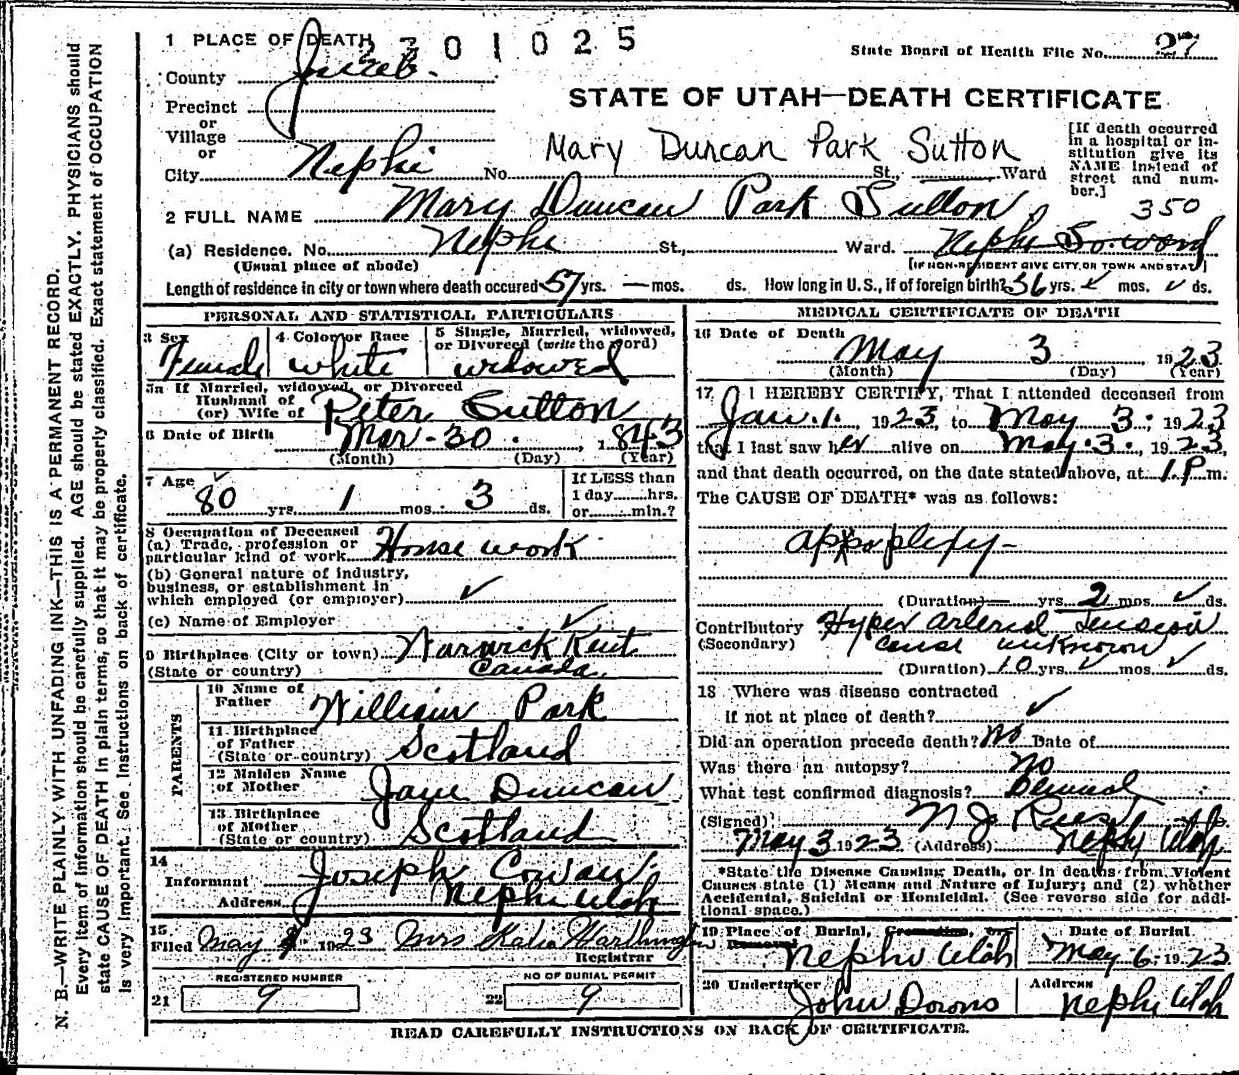 1 PLACE OF DEATH 2301025
State Board of Health File No. 27
County Juab.
STATE OF UTAH—DEATH CERTIFICATE
Precinct
or
Village
or
City Nephi No. St., Ward
Mary Duncan Park Sutton
[If death occurred in a hospital or institution give its NAME instead of street and number.]
2 FULL NAME Mary Duncan Park Sutton 350
(a) Residence. No. Nephi St., Ward. Nephi So. word
(Usual place of abode) [IF NON-RESIDENT GIVE CITY, OR TOWN AND STATE]
Length of residence in city or town where death occured 57 yrs. — mos. ds. How long in U.S., if of foreign birth? 36 yrs. ✓ mos. ✓ ds.
PERSONAL AND STATISTICAL PARTICULARS
3 Sex Female
4 Color or Race white
5 Single, Married, widowed, or Divorced (write the word) widowed
5a If Married, widowed, or Divorced
Husband of
(or) Wife of Peter Sutton
6 Date of Birth Mar - 30 . , 1843
(Month) (Day) (Year)
7 Age 80 yrs. 1 mos. 3 ds.
If LESS than
1 day hrs.
or min.?
8 Occupation of Deceased
(a) Trade, profession or
particular kind of work House work
(b) General nature of industry,
business, or establishment in
which employed (or employer) ✓
(c) Name of Employer ✓
9 Birthplace (City or town) Warwick Kent
(State or country) Canada
PARENTS
10 Name of
Father William Park
11 Birthplace
of Father
(State or country) Scotland
12 Maiden Name
of Mother Jane Duncan
13 Birthplace
of Mother
(State or country) Scotland
14
Informant Joseph Cowan
Address Nephi Utah
15
Filed May 1923 Mrs Katie
Registrar
REGISTERED NUMBER
21 9
NO OF BURIAL PERMIT
22 9
MEDICAL CERTIFICATE OF DEATH
16 Date of Death
May 3 1923
(Month) (Day) (Year)
17 I HEREBY CERTIFY, That I attended deceased from
Jan. 1. 1923, to May 3; 1923
that I last saw her alive on May. 3., 1923,
and that death occurred, on the date stated above, at 1 P m.
The CAUSE OF DEATH* was as follows:
appoplexy -
(Duration) — yrs. 2 mos. ✓ ds.
Contributory Hyper Arterial Tension
(Secondary) Cause unknown
(Duration) 10 yrs. ✓ mos. ✓ ds.
18 Where was disease contracted
if not at place of death? ✓
Did an operation precede death? No Date of
Was there an autopsy? No
What test confirmed diagnosis?
(Signed) N J Rees
May 3 1923 (Address) Nephi Utah
*State the Disease Causing Death, or in deaths from Violent
Causes state (1) Means and Nature of Injury; and (2) whether
Accidental, Suicidal or Homicidal. (See reverse side for addi-
tional space.)
19 Place of Burial, Cremation, or
Removal Nephi Utah
Date of Burial
May 6, 1923
20 Undertaker John Downs
Address Nephi Utah
READ CAREFULLY INSTRUCTIONS ON BACK OF CERTIFICATE.
N. B.—WRITE PLAINLY WITH UNFADING INK—THIS IS A PERMANENT RECORD.
Every item of information should be carefully supplied. AGE should be stated EXACTLY. PHYSICIANS should
state CAUSE OF DEATH in plain terms, so that it may be properly classified. Exact statement of OCCUPATION
is very important. See Instructions on back of certificate.